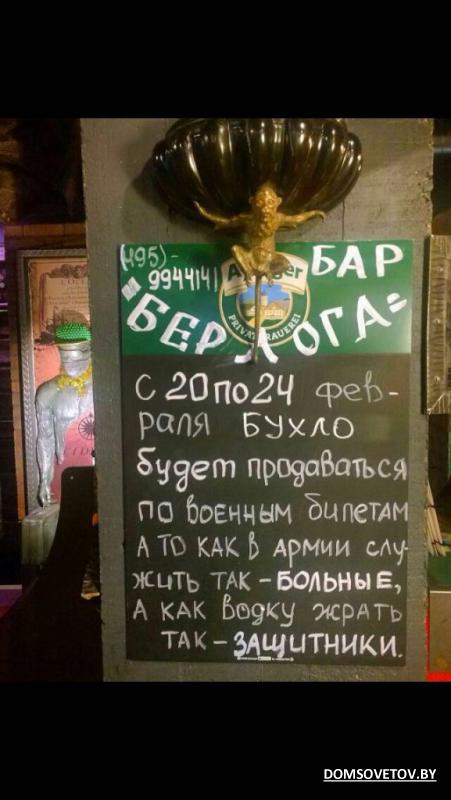 (495)-
9944141
БАР
"БЕРЛОГА"
PRIVATBRAUEREI
С 20 по 24 фев-
раля БУХЛО
будет продаваться
по военным билетам
А ТО КАК В АРМИИ СЛУ-
ЖИТЬ ТАК - БОЛЬНЫЕ,
А КАК Водку ЖРАТЬ
ТАК - ЗАЩИТНИКИ.
DOMSOVETOV.BY